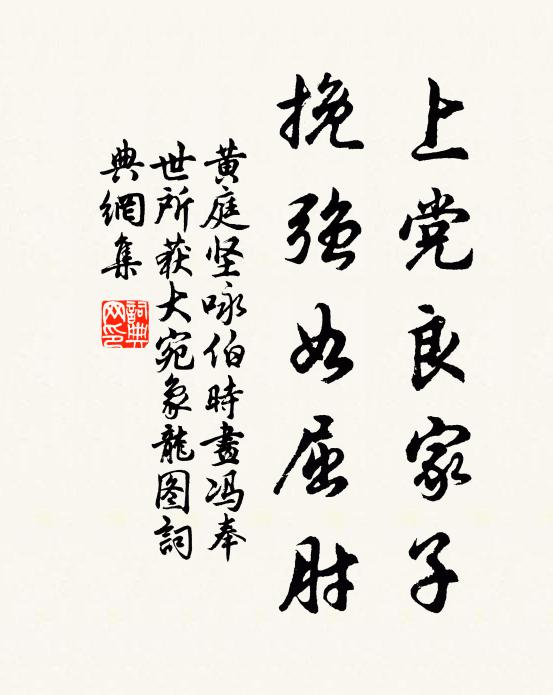 上党良家子
挽强如屈肘
黄庭坚咏伯時畫冯奉
世所获大宛象龍图詞
典網集
詞典
网印